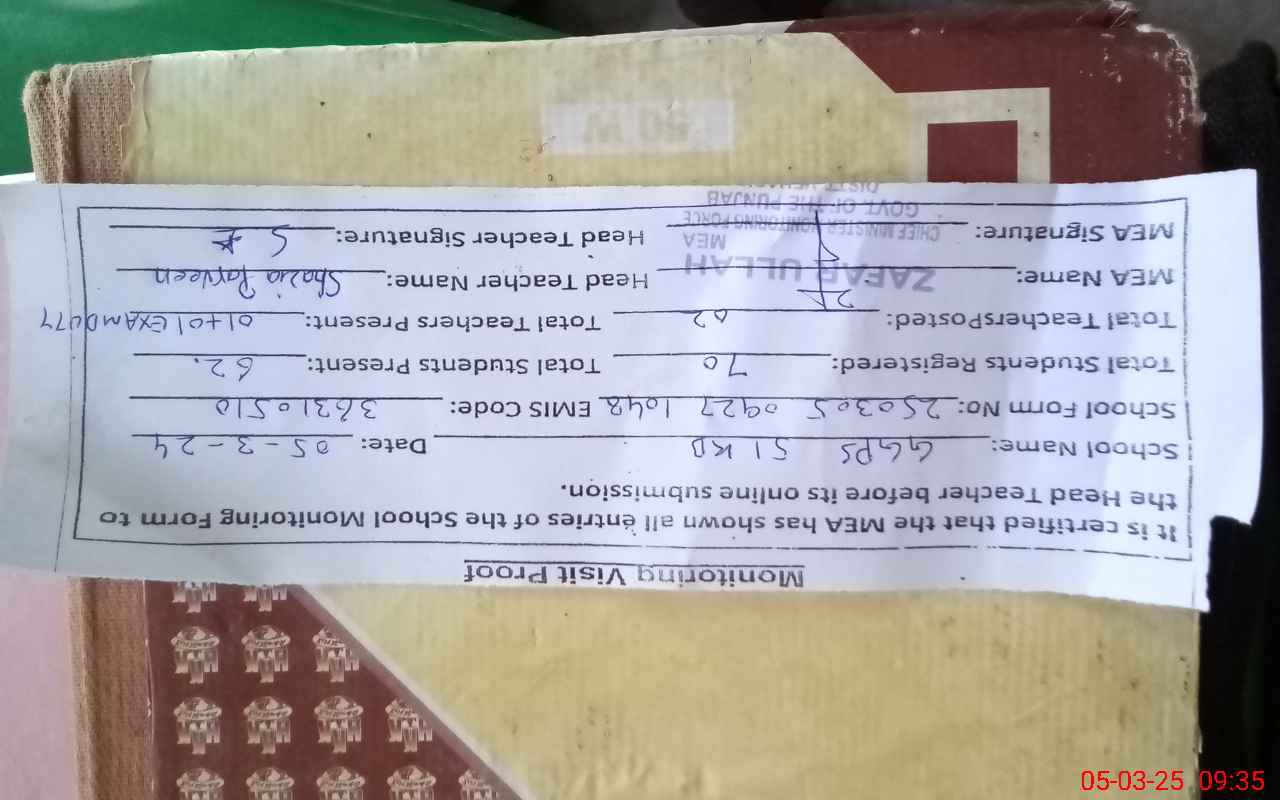 Monitoring Visit Proof
It is certified that the MEA has shown all entries of the School Monitoring Form to
the Head Teacher before its online submission.
School Name: GGPS 51 KB Date: 05-3-24
School Form No: 250305 0927 1048 EMIS Code: 36310510
Total Students Registered: 70 Total Students Present: 62.
Total TeachersPosted: 02 Total Teachers Present: 01+01 EXAM Duty
MEA Name: ZAFAR ULLAH Head Teacher Name: Shazia Parveen
MEA
MEA Signature: Head Teacher Signature:
CHIEF MINISTER MONITORING FORCE
GOVT. OF THE PUNJAB
05-03-25 09:35